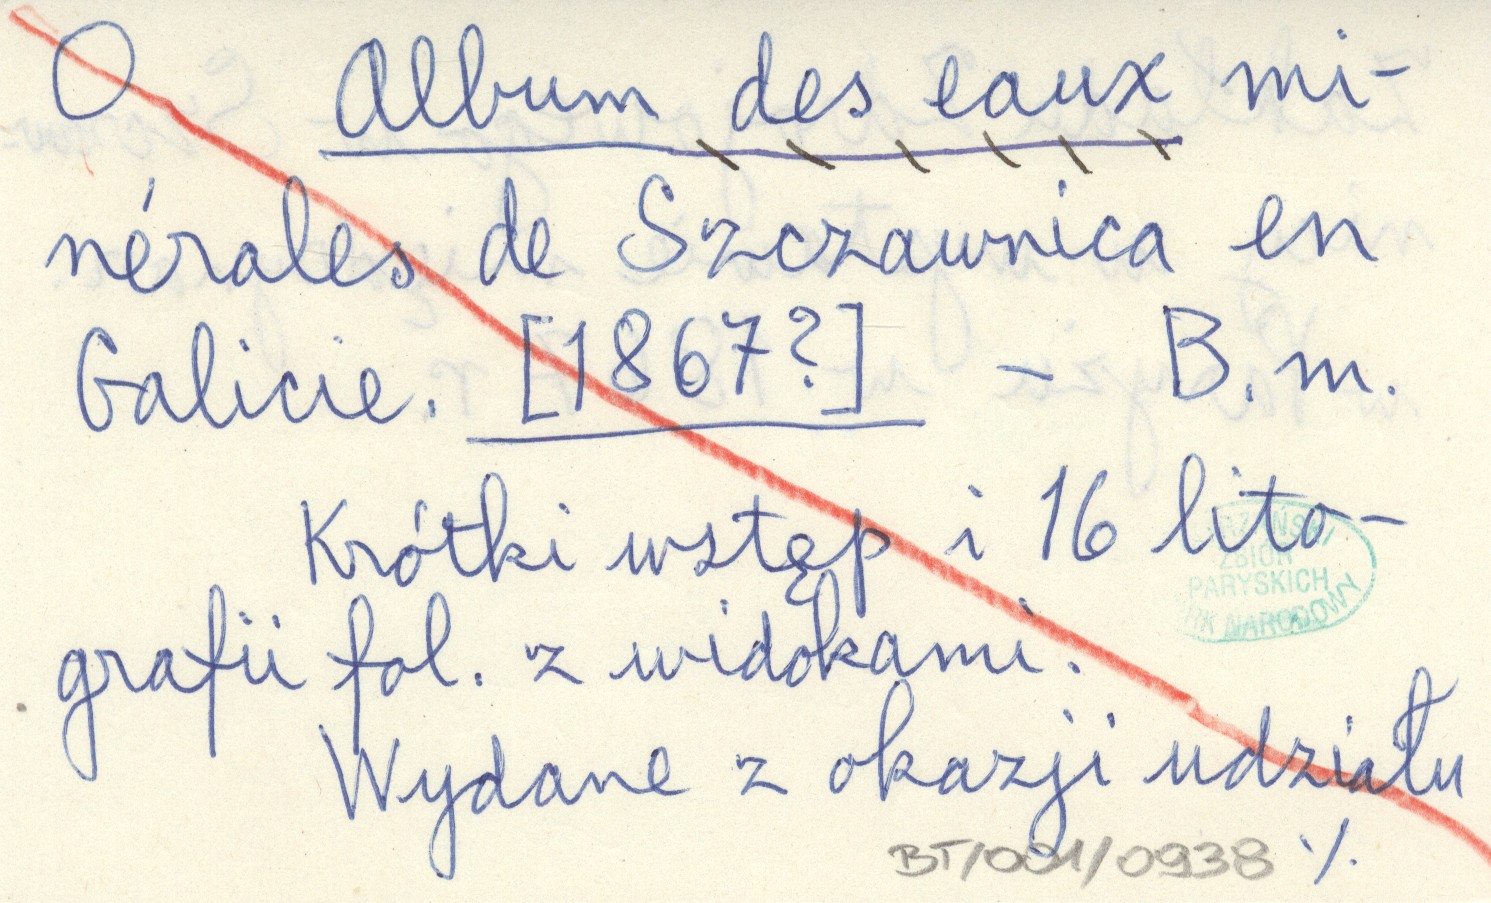 O Album des eaux mi-
nérales de Szczawnica en
Galicie. [1867?] - B.m.
Krótki wstęp i 16 lito-
grafii fol. z widokami.
Wydane z okazji udziału
./.
BT/001/0938
ZBIOR
PARYSKICH
NARODOWY